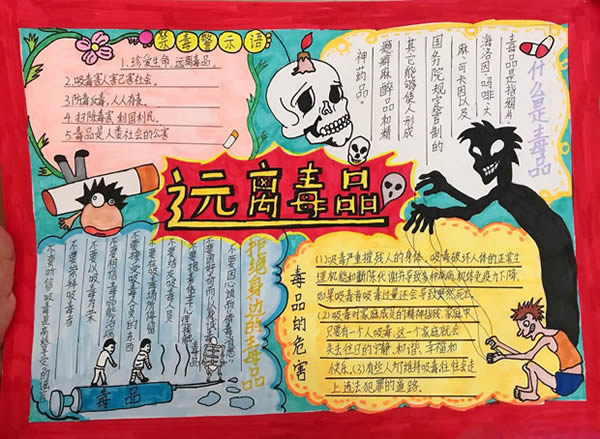 禁毒警示语
1.珍爱生命,远离毒品。
2.吸毒害人害己害社会。
3.防毒反毒,人人有责。
4.扫除毒害 利国利民。
5.毒品是人类社会的公害
什么是毒品
毒品是指鸦片、
海洛因、吗啡、大
麻、可卡因以及
国务院规定管制的
其它能够使人形成
瘾癖麻醉品和精
神药品。
远离毒品
拒绝身边的毒品
不要因心烦而
不要因好奇而以身试毒
不要抱着侥幸心理接触毒品
不要结交吸毒人员
不要在吸毒场所停留
不要接受吸毒人员的东西
不要相信毒品能治病
不要以吸毒为荣
不要崇拜吸毒者
不要听信吸毒是高级享受的谣言
毒品
毒品的危害
(1)吸毒严重摧残人的身体。吸毒破坏人体的正常生
理机能和新陈代谢并导致多种疾病,机体免疫力下降,
如果吸毒有吸毒过量还会导致突然死亡
(2)吸毒对家庭成员的精神摧残,家庭中
只要有一个人吸毒,这一个家庭就会
失去往日的宁静、和谐、幸福和
快乐。(3)有些人为维持吸毒往往会走
上违法犯罪的道路。